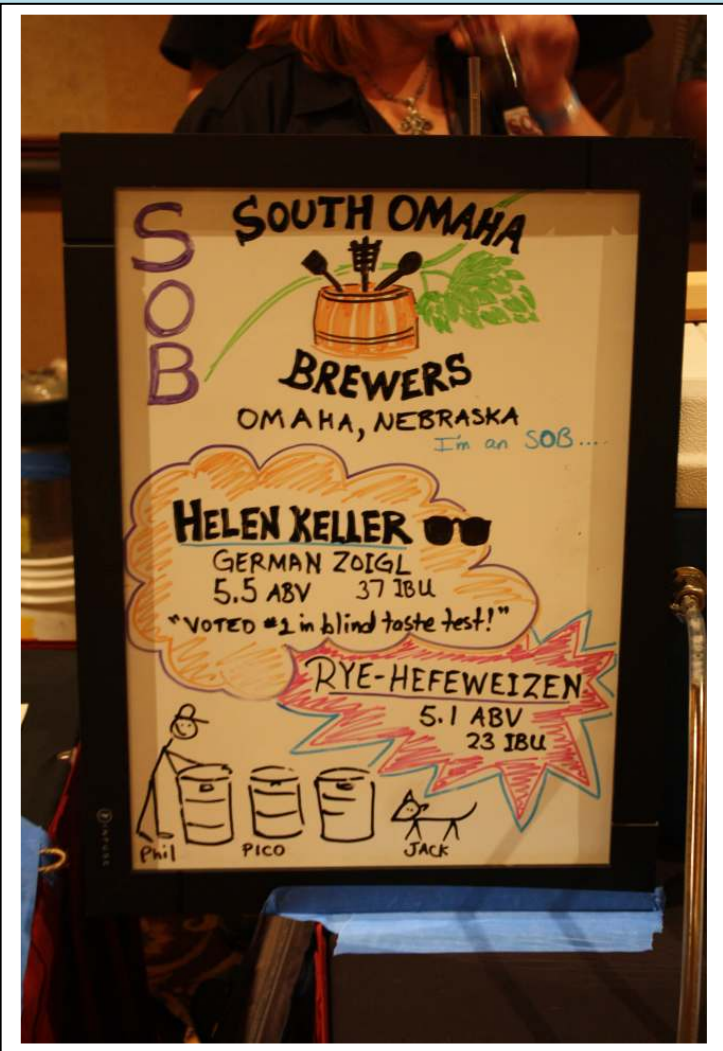 SOB
SOUTH OMAHA
BREWERS
OMAHA, NEBRASKA
I'm an SOB....
HELEN KELLER
GERMAN ZOIGL
5.5 ABV 37 IBU
"VOTED #1 in blind taste test!"
RYE-HEFEWEIZEN
5.1 ABV
23 IBU
Phil PICO JACK